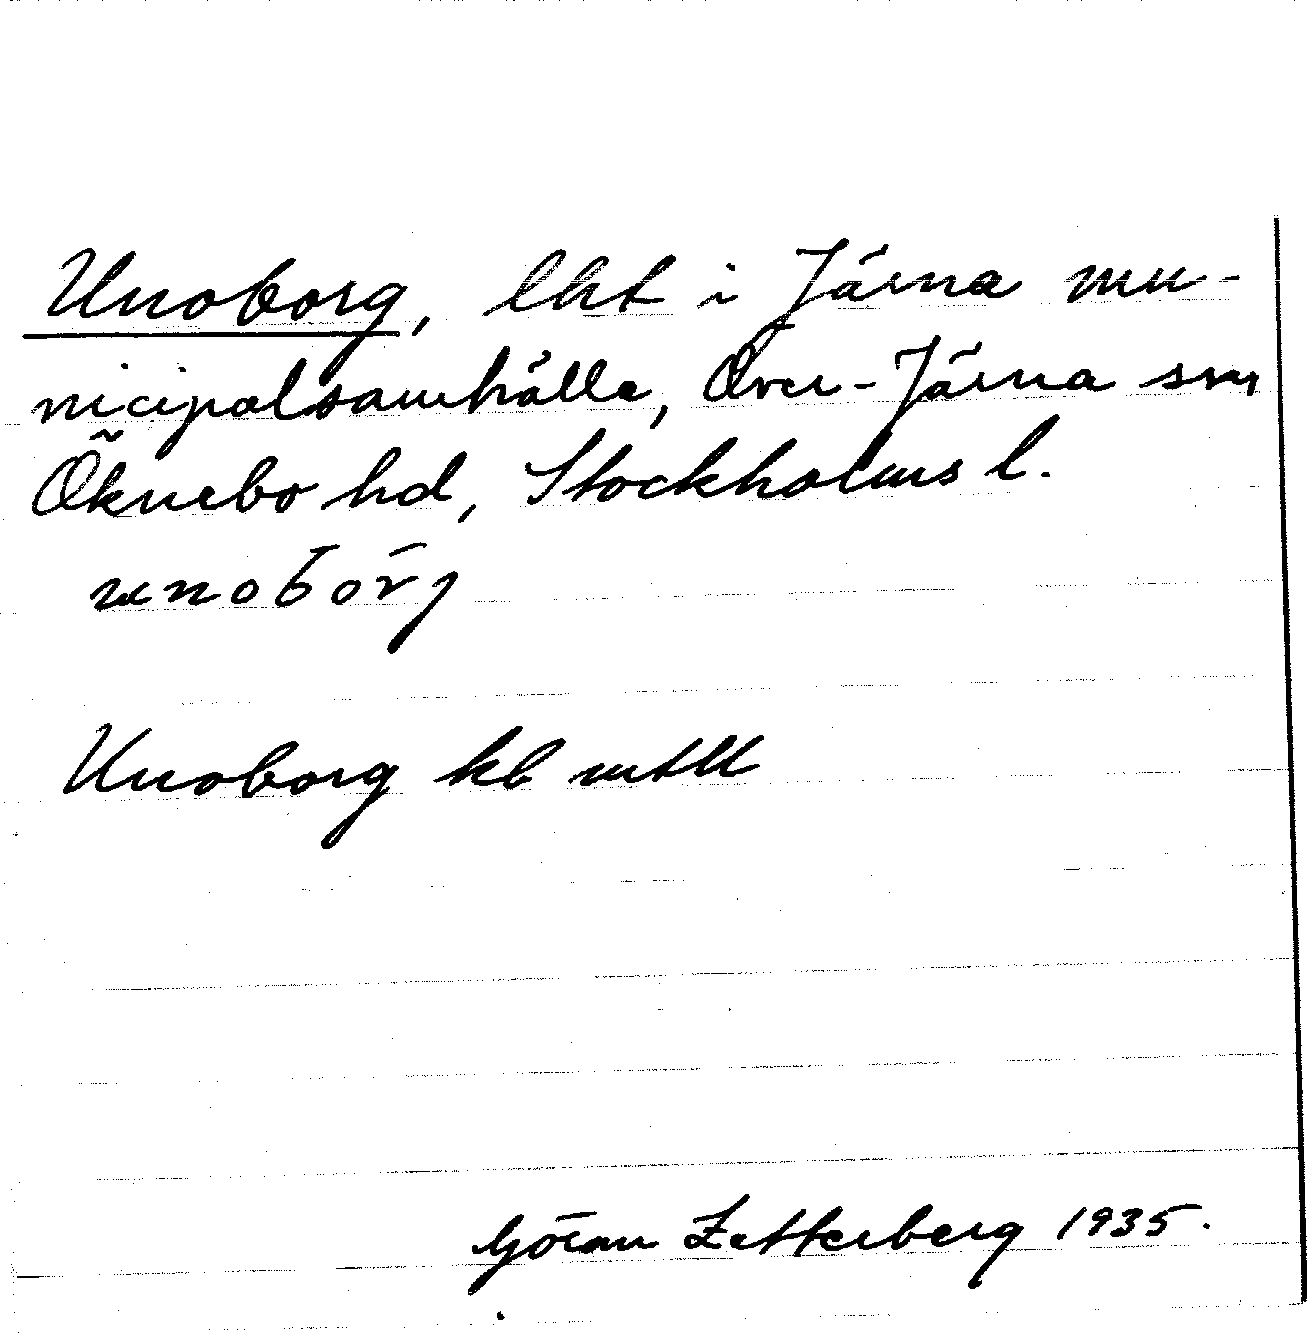 Unoborg, lht i Järna mu-
nicipalsamhälle, Över-Järna sn,
Öknebo hd, Stockholms l.
unobörj
Unoborg kb mtll
Göran Zetterberg 1935.